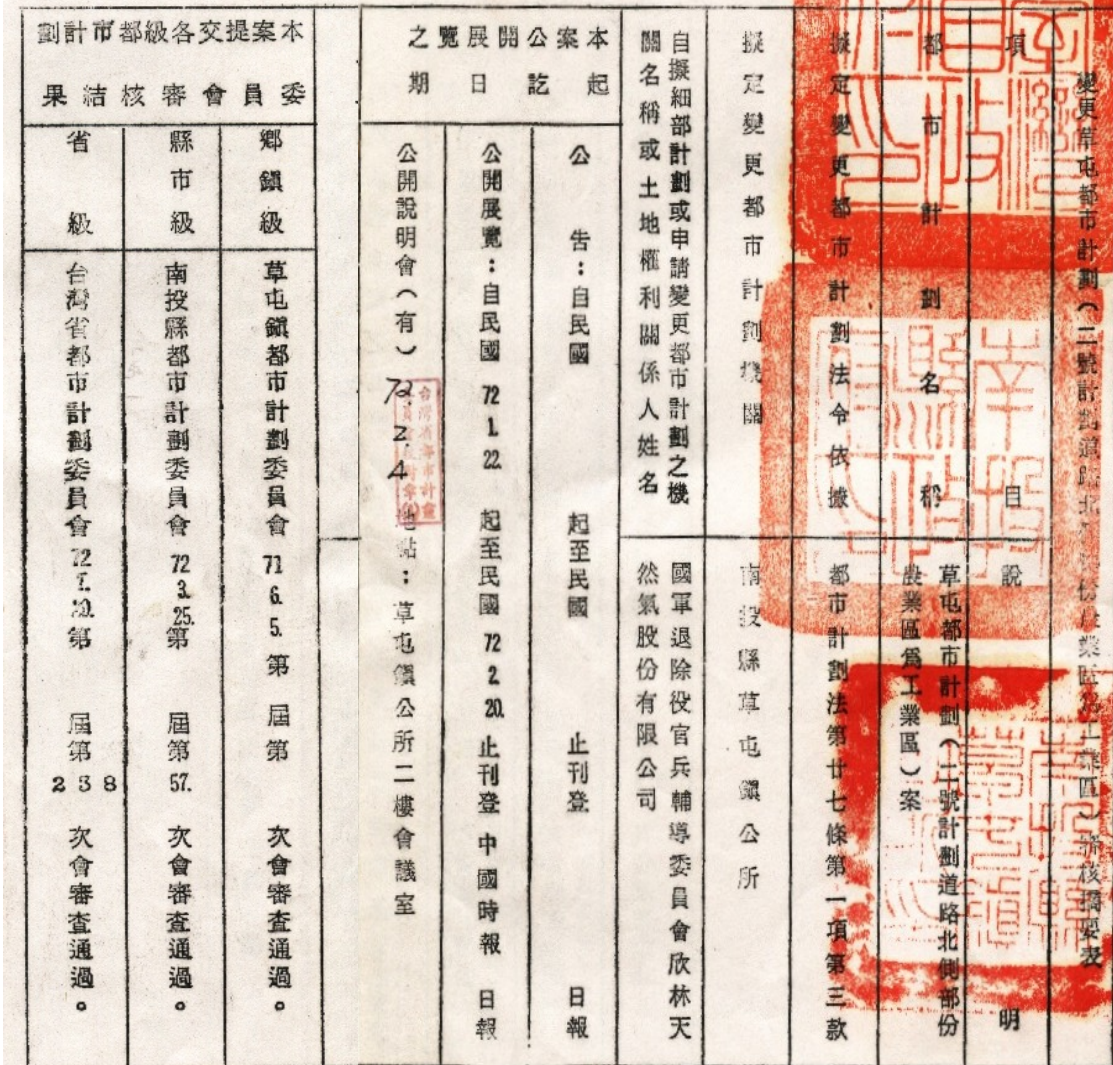 變更草屯都市計劃(二號計劃道路北側部份農業區為工業區)審核摘要表
項目 說明
都市計劃名稱
草屯都市計劃(二號計劃道路北側部份
農業區爲工業區)案
擬定變更都市計劃法令依據
都市計劃法第廿七條第一項第三款
擬定變更都市計劃機關
南投縣草屯鎭公所
自擬細部計劃或申請變更都市計劃之機
關名稱或土地權利關係人姓名
國軍退除役官兵輔導委員會欣林天
然氣股份有限公司
本案公開展覽之
起訖日期
公告:自民國 起至民國 止刊登 日報
公開展覽:自民國 72 1. 22. 起至民國 72 2. 20. 止刊登 中國時報 日報
公開說明會(有) 72. 2. 4 地點:草屯鎭公所二樓會議室
本案提交各級都市計劃
委員會審核結果
鄉鎭級
草屯鎭都市計劃委員會 71 6. 5. 第 屆第 次會審查通過。
縣市級
南投縣都市計劃委員會 72 3. 25. 第 屆第 57. 次會審查通過。
省級
台灣省都市計劃委員會 72 第 屆第 238 次會審查通過。